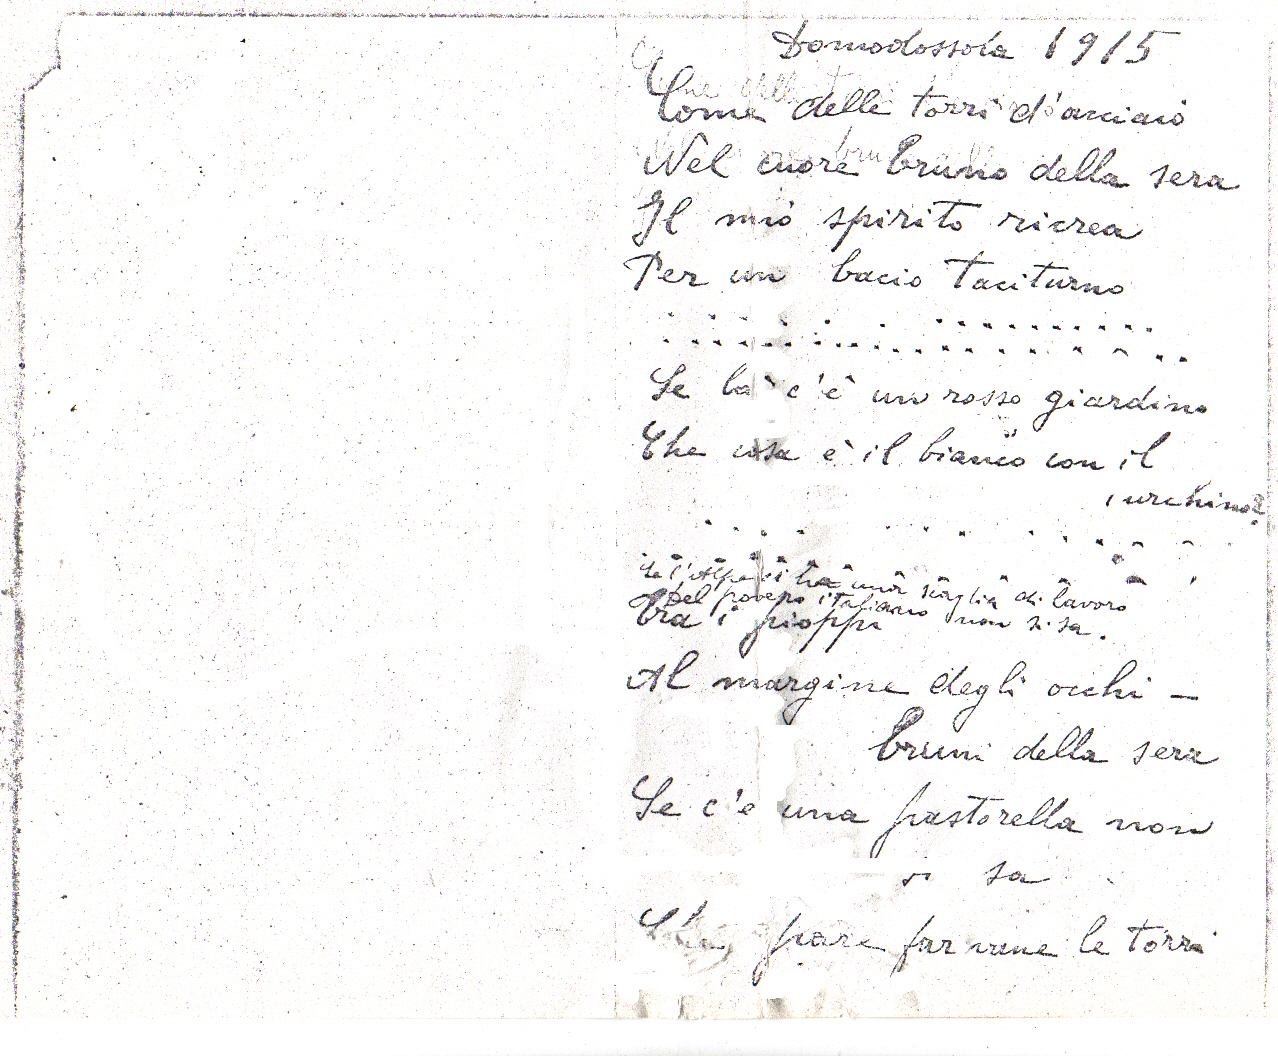 Domodossola 1915
Come delle torri d'acciaio
Nel cuore bruno della sera
Il mio spirito ricrea
Per un bacio taciturno
Se là c'è un rosso giardino
Che cosa è il bianco con il
turchino?
Se l'Alpe ci ha una scaglia di lavoro
Del povero italiano non si sa.
Tra i pioppi
Al margine degli occhi —
bruni della sera
Se c'è una pastorella non
si sa
pare far vane le torri